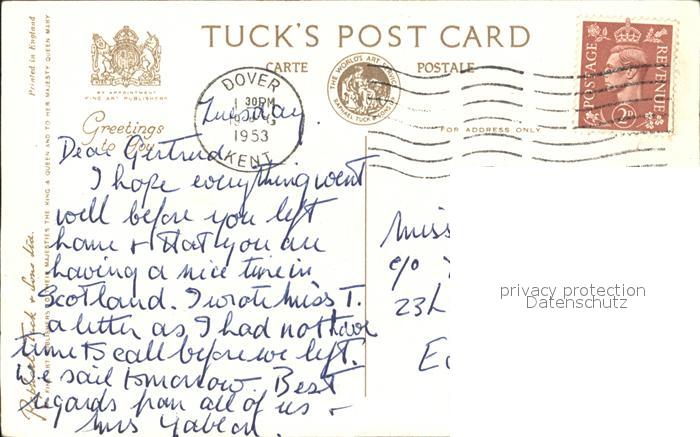 TUCK'S POST CARD
CARTE POSTALE
BY APPOINTMENT
FINE ART PUBLISHERS
THE WORLD'S ART SERVICE
RAPHAEL TUCK & SONS LTD
DOVER
1 30PM
1953
KENT
POSTAGE REVENUE
2D
FOR ADDRESS ONLY
Greetings
to You
Printed in England
Raphael Tuck & Sons Ltd.
FINE ART PUBLISHERS TO THEIR MAJESTIES THE KING & QUEEN AND TO HER MAJESTY QUEEN MARY
Tuesday.
Dear Gertrude
I hope everything went
well before you left
home & that you are
having a nice time in
Scotland. I wrote Miss T.
a letter as I had not have
time to call before we left.
We sail tomorrow. Best
regards from all of us &
Miss
Miss
c/o
23
privacy protection
Datenschutz